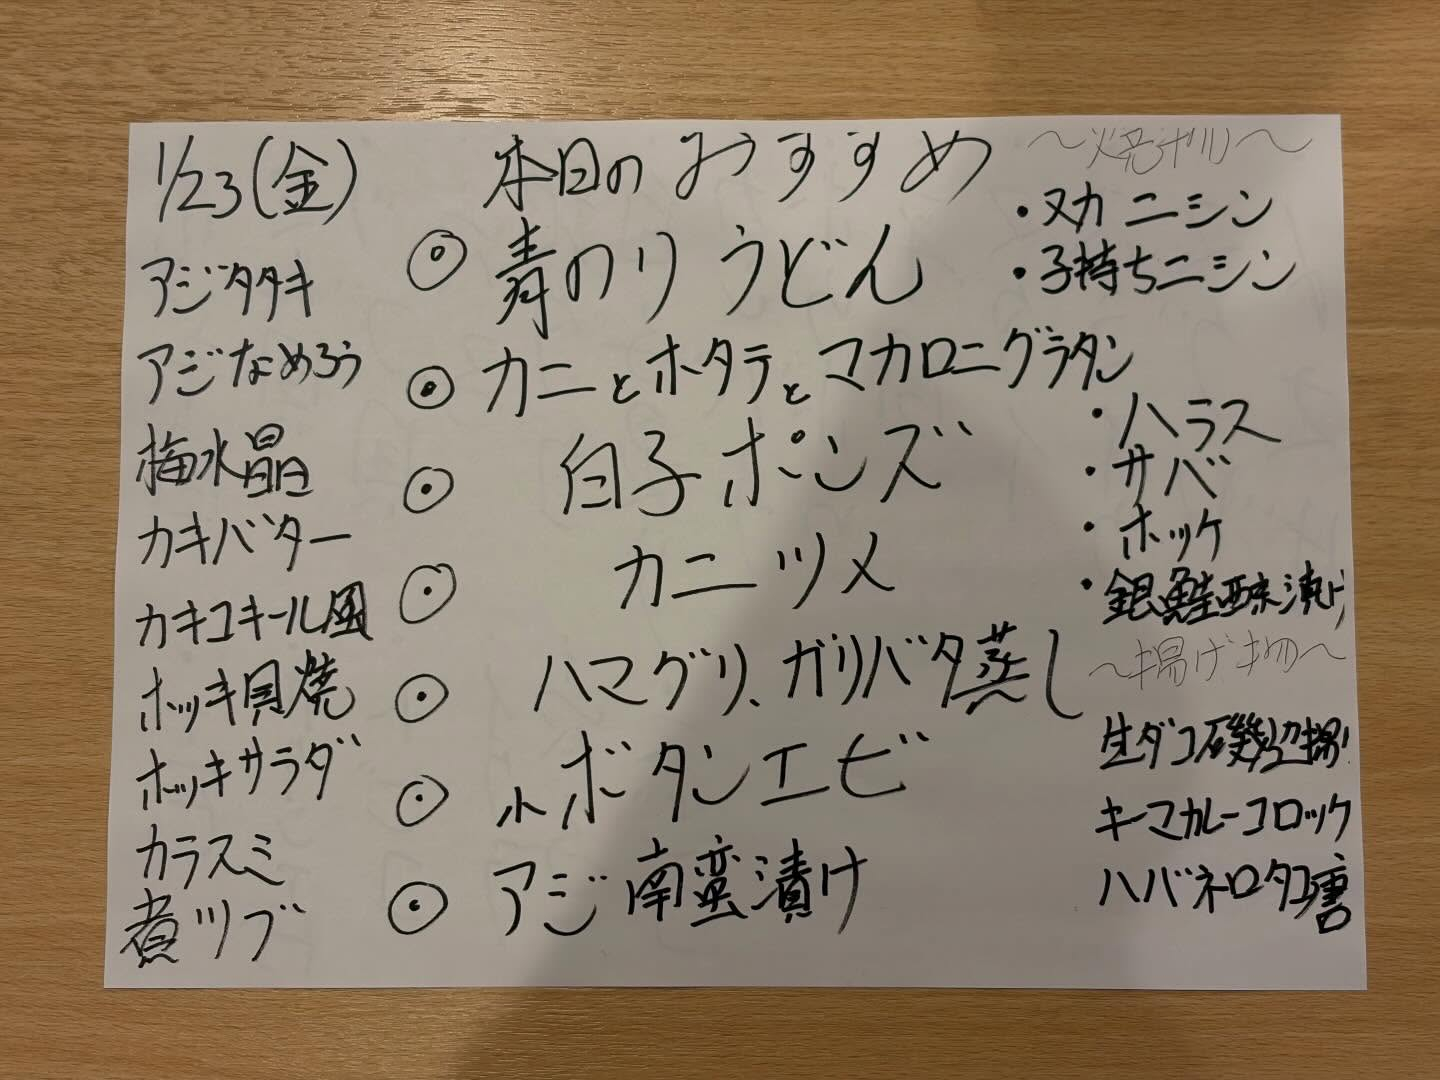 1/23(金)
アジタタキ
アジなめろう
梅水晶
カキバター
カキコキール風
ホッキ貝焼
ホッキサラダ
カラスミ
煮ツブ
本日のおすすめ
◎ 青のりうどん
◎ カニとホタテとマカロニグラタン
◎ 白子ポンズ
◎ カニツメ
◎ ハマグリ、ガリバタ蒸し
◎ 小ボタンエビ
◎ アジ南蛮漬け
～焼物～
・ヌカニシン
・子持ちニシン
・ハラス
・サバ
・ホッケ
・銀鮭西京漬け
～揚げ物～
生ダコ磯辺揚
キーマカレーコロッケ
ハバネロタコ唐